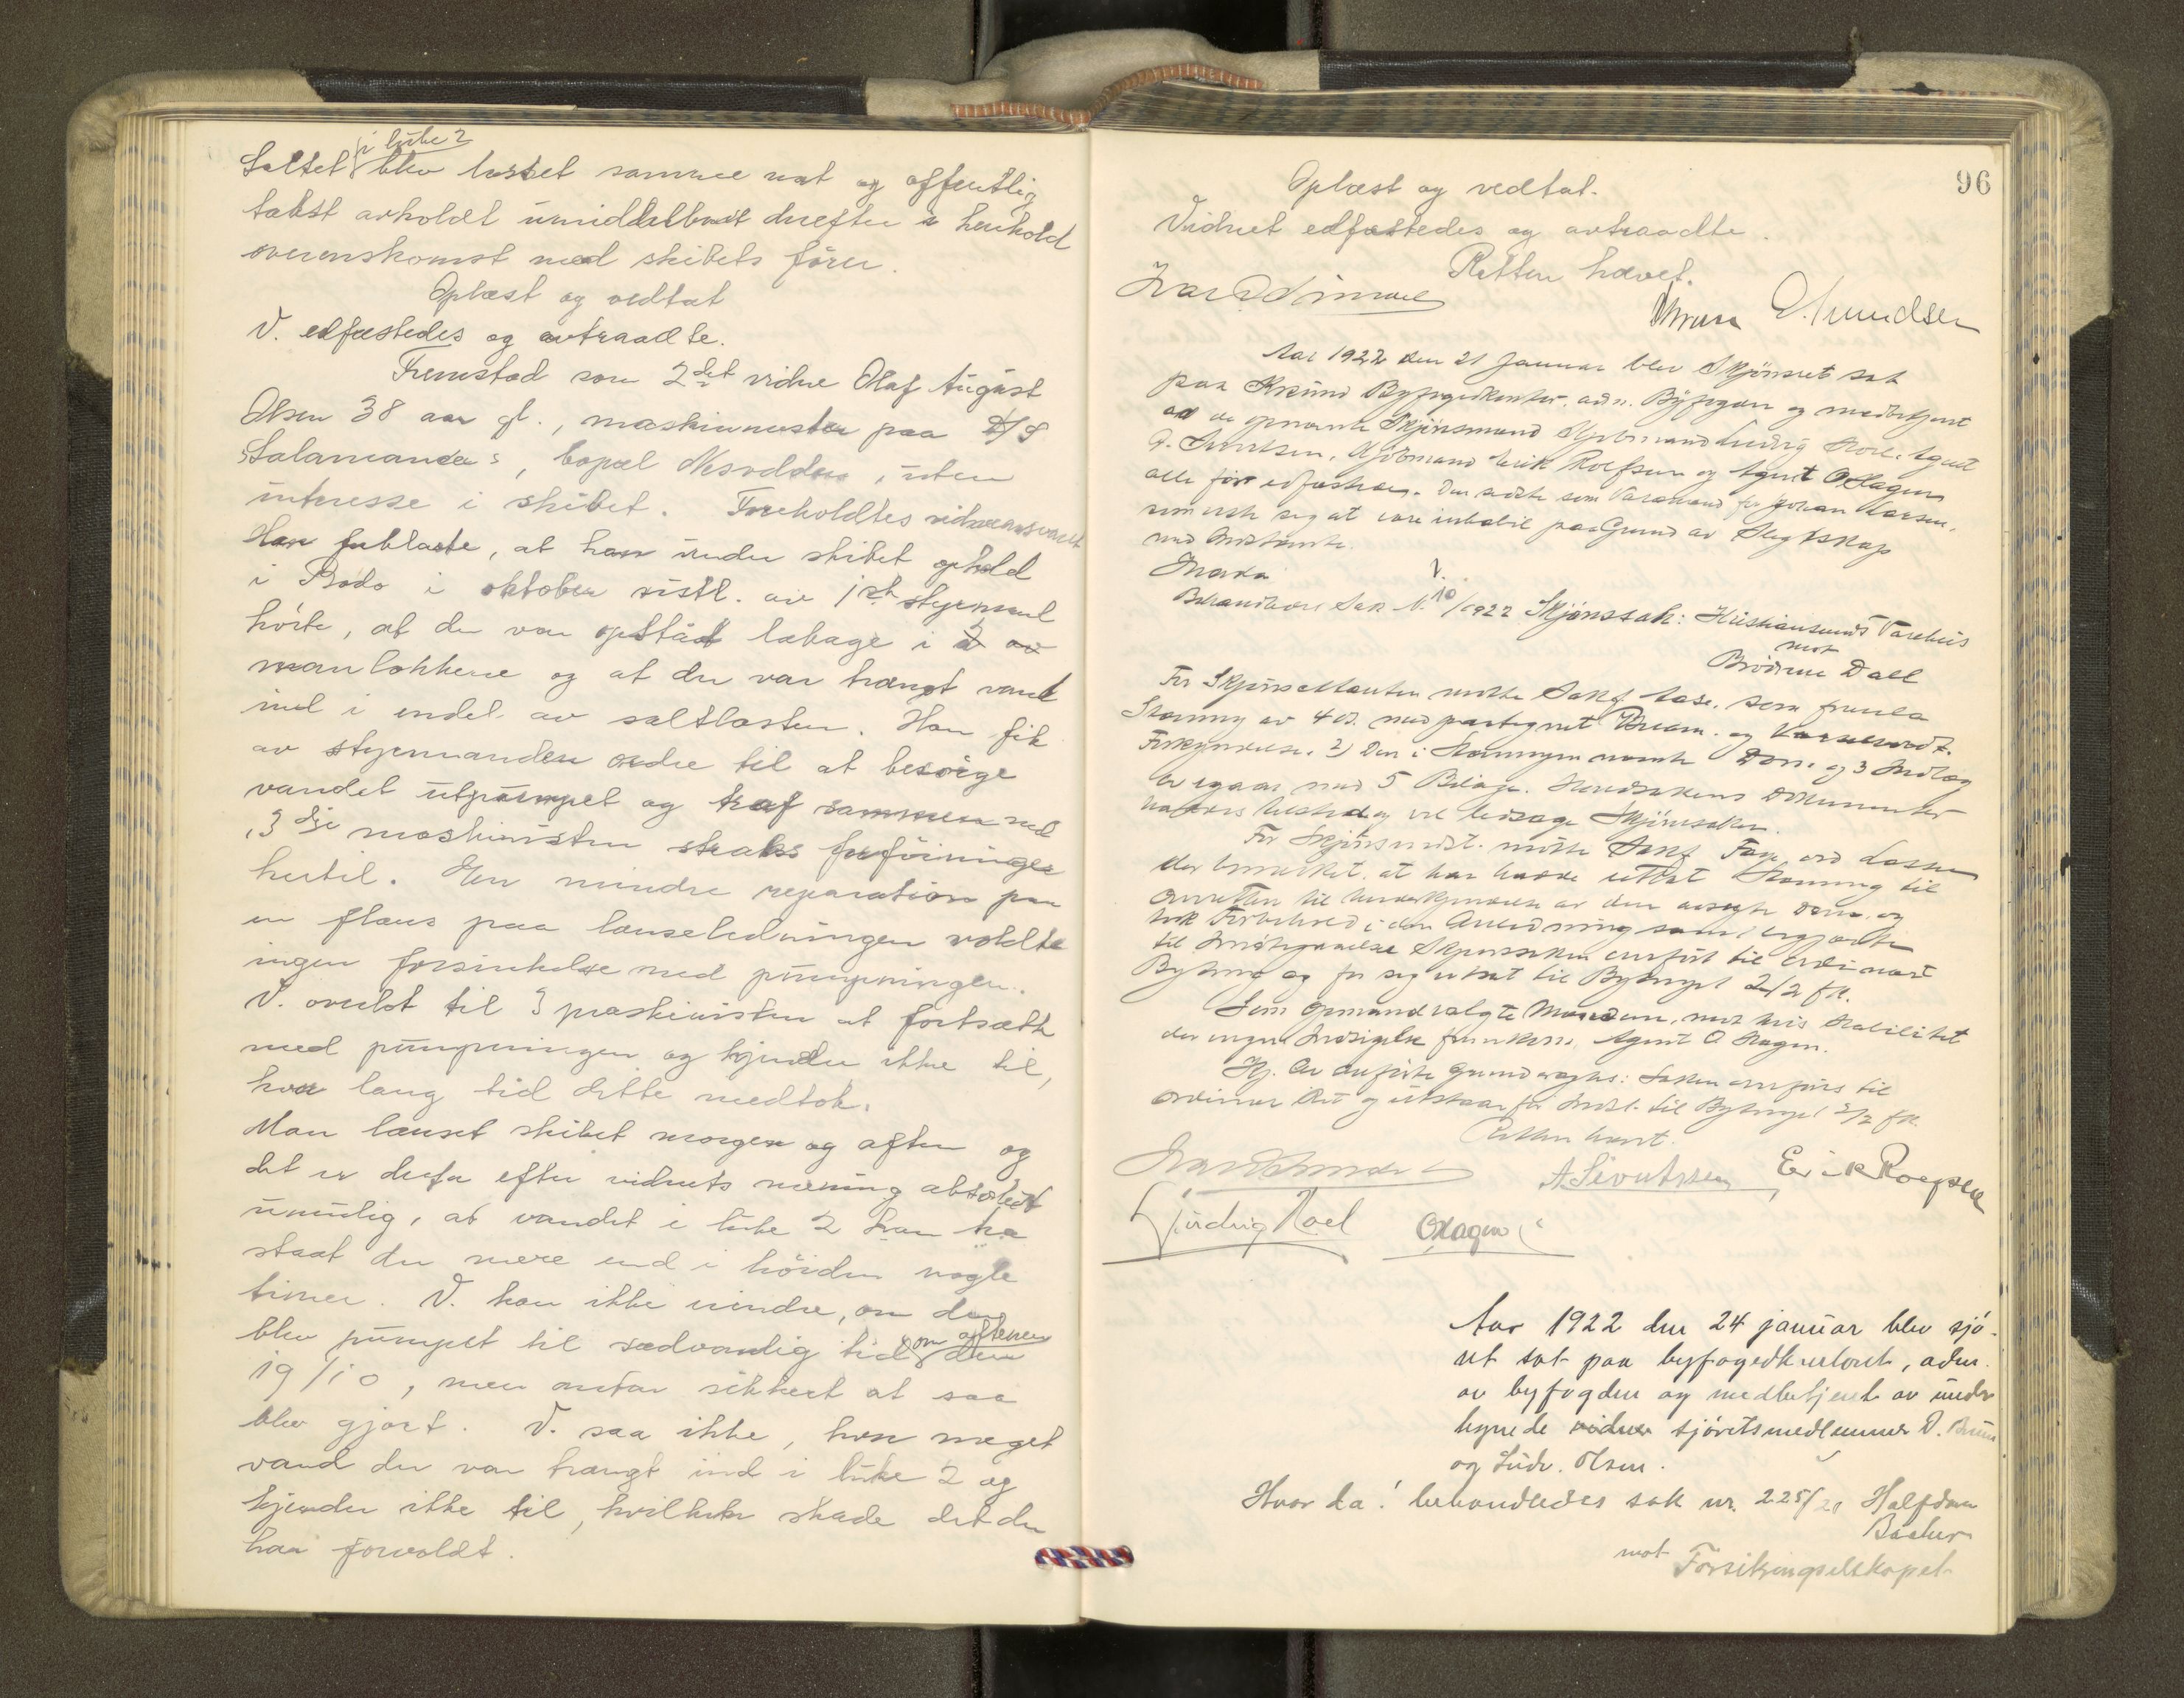 Saltet i luke 2 blev losset samme nat og offentlig
takst avholdt umiddelbart derefter i henhold
overenskomst med skibets förer.
Oplæst og vedtat
V. edfæstedes og avtraadte.
Fremstod som 2det vidne Olaf August
Olsen 38 aar gl., maskinmester paa D/S
"Salamanca", bopæl Nesodden, uten
interesse i skibet. Foreholdtes vidneansvaret
Han forklarte, at han under skibet ophold
i Bodo i oktober sistl. av 1st styrmand
hörte, at der var opståt lækage i 2 av
manlokkene og at der var trængt vand
ind i endel av saltlasten. Han fik
av styrmanden ordre til at besörge
vandet utpumpet og traf sammen med
3dje maskinisten straks forföininger
hertil. En mindre reparation paa
en flens paa lænseledningen voldte
ingen forsinkelse med pumpningen.
V. overlot til 3 maskinisten at fortsætte
med pumpningen og kjender ikke til,
hvor lang tid dette medtok.
Man lænset skibet morgen og aften og
det er derfor efter vidnets mening absolut
umulig, at vandet i luke 2 kan ha
staat der mere end i höiden nogle
timer. V. kan ikke erindre, om der
blev pumpet til sædvanlig tid om aftenen den
19/10, men antar sikkert at saa
blev gjort. V. saa ikke, hvor meget
vand der var trængt ind i luke 2 og
kjender ikke til, hvilken skade det der
har forvoldt.
96
Oplæst og vedtat.
Vidnet edfæstedes og avtraadte.
Retten hævet.
Aar 1922 den 21 Januar blev Skjönsret sat
paa Krsund Byfogedkontor, adm. Byfogden og medbetjent
av de opnævnte Skjönsmænd Kjöbmand Ludvig Roel, Agent
A. Sivertsen, Kjöbmand Erik Rolfsen og Agent O Hagen
alle för edfæstede. Den sidste som Varamand for Johan Larsen,
som viste sig at være inhabil paa Grund av Slegtskap
med
Hvorda
Behandledes Sak N. 10/1922 Skjönssak: Kristiansunds Varehus
mot
Brödrene Dall
For Skjönssaksökeren mötte Sakf. Aase, som fremla
Stævning av 4 ds. med paategnet Beram. og
Forkyndelse. 2) Den i Stævningen nævnte Dom. og 3 Indlæg
av igaar med 5 Bilage. Hovedsakens Dokumenter
For mötte Sakf. for Lossius
der bemerket, at han hadde uttat Stævning til
Overretten til Underkjendelse av den avsagte Dom. og
tok Forbehold i den Anledning samt
til Imötegaaelse Skjönssaken overfört til ordinært
Byting og for sig utsat til Bytinget 2/2 fk.
Som Opmand valgte Mændene, mot hvis Habilitet
der ingen Indsigelse fremkom, Agent O Hagen.
Kj. Av anförte Grund vagtes: Saken overföres til
ordinær Ret og utstaar för Indst. til Bytinget 2/2 fk.
Retten hævet.
A Sivertsen Erik Roepsen
Ludvig Roel OHagen
Aar 1922 den 24 januar blev sjö-
ret sat paa byfogedkontoret, adm.
av byfogden og medbetjent av under
tegnede vidner sjöretsmedlemmer D. Bruun
og Ludv. Olsen.
Hvor da: behandledes sak nr. 225/21 Halfdan
Backer
mot Forsikringselskapet